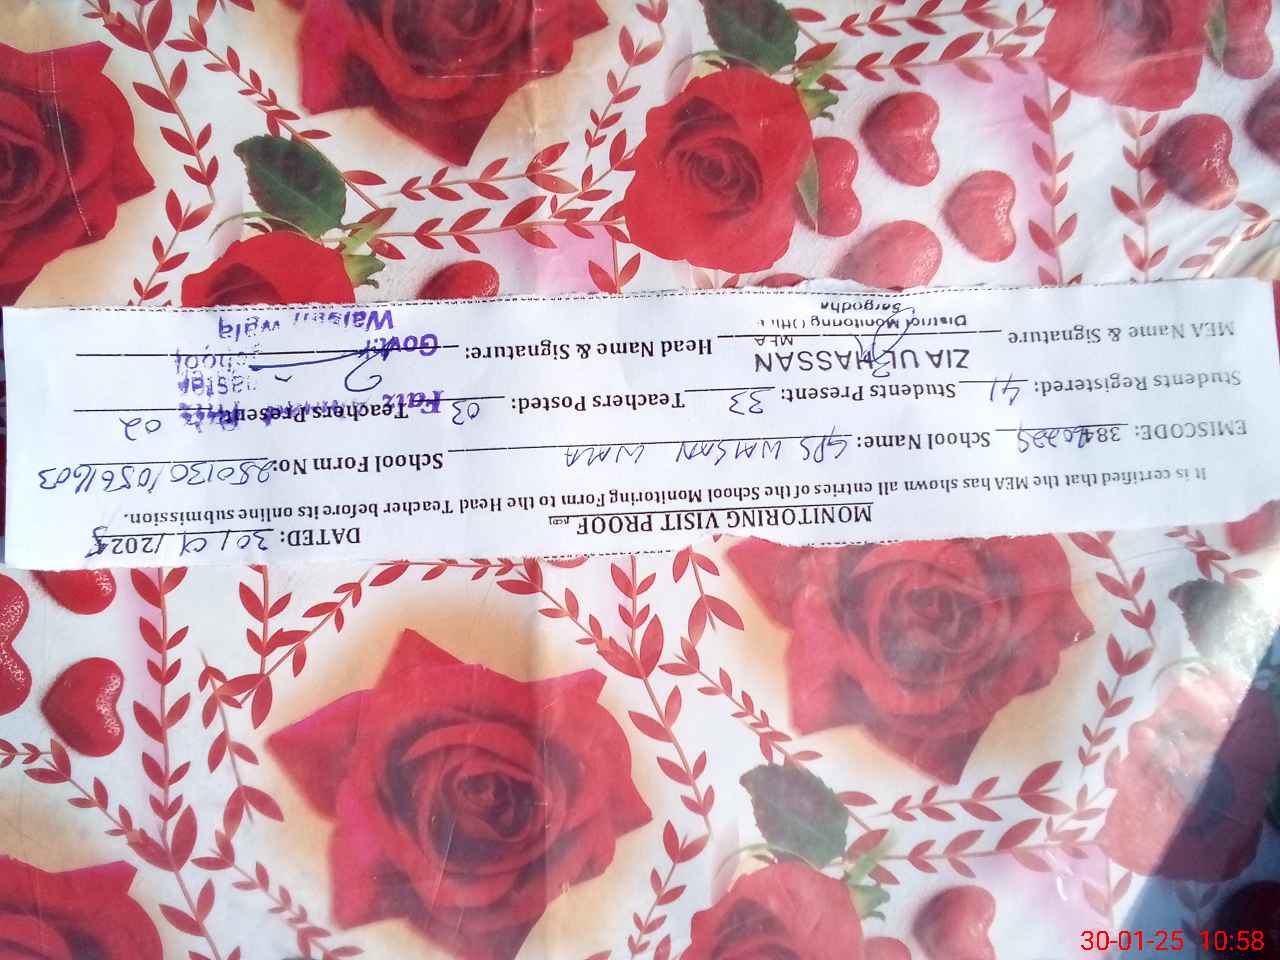 MONITORING VISIT PROOF
DATED: 30/01/2025
It is certified that the MEA has shown all entries of the School Monitoring Form to the Head Teacher before its online submission.
EMISCODE: 384 School Name: GPS WALSAN WALA School Form No: 25013010561603
Students Registered: 41 Students Present: 33 Teachers Posted: 03 Teachers Present: 02
MEA Name & Signature Head Name & Signature:
ZIA UL HASSAN
MEA
District Monitoring Officer
Sargodha
Faiz
Master
Govt. School
Walsan Wala
30-01-25 10:58